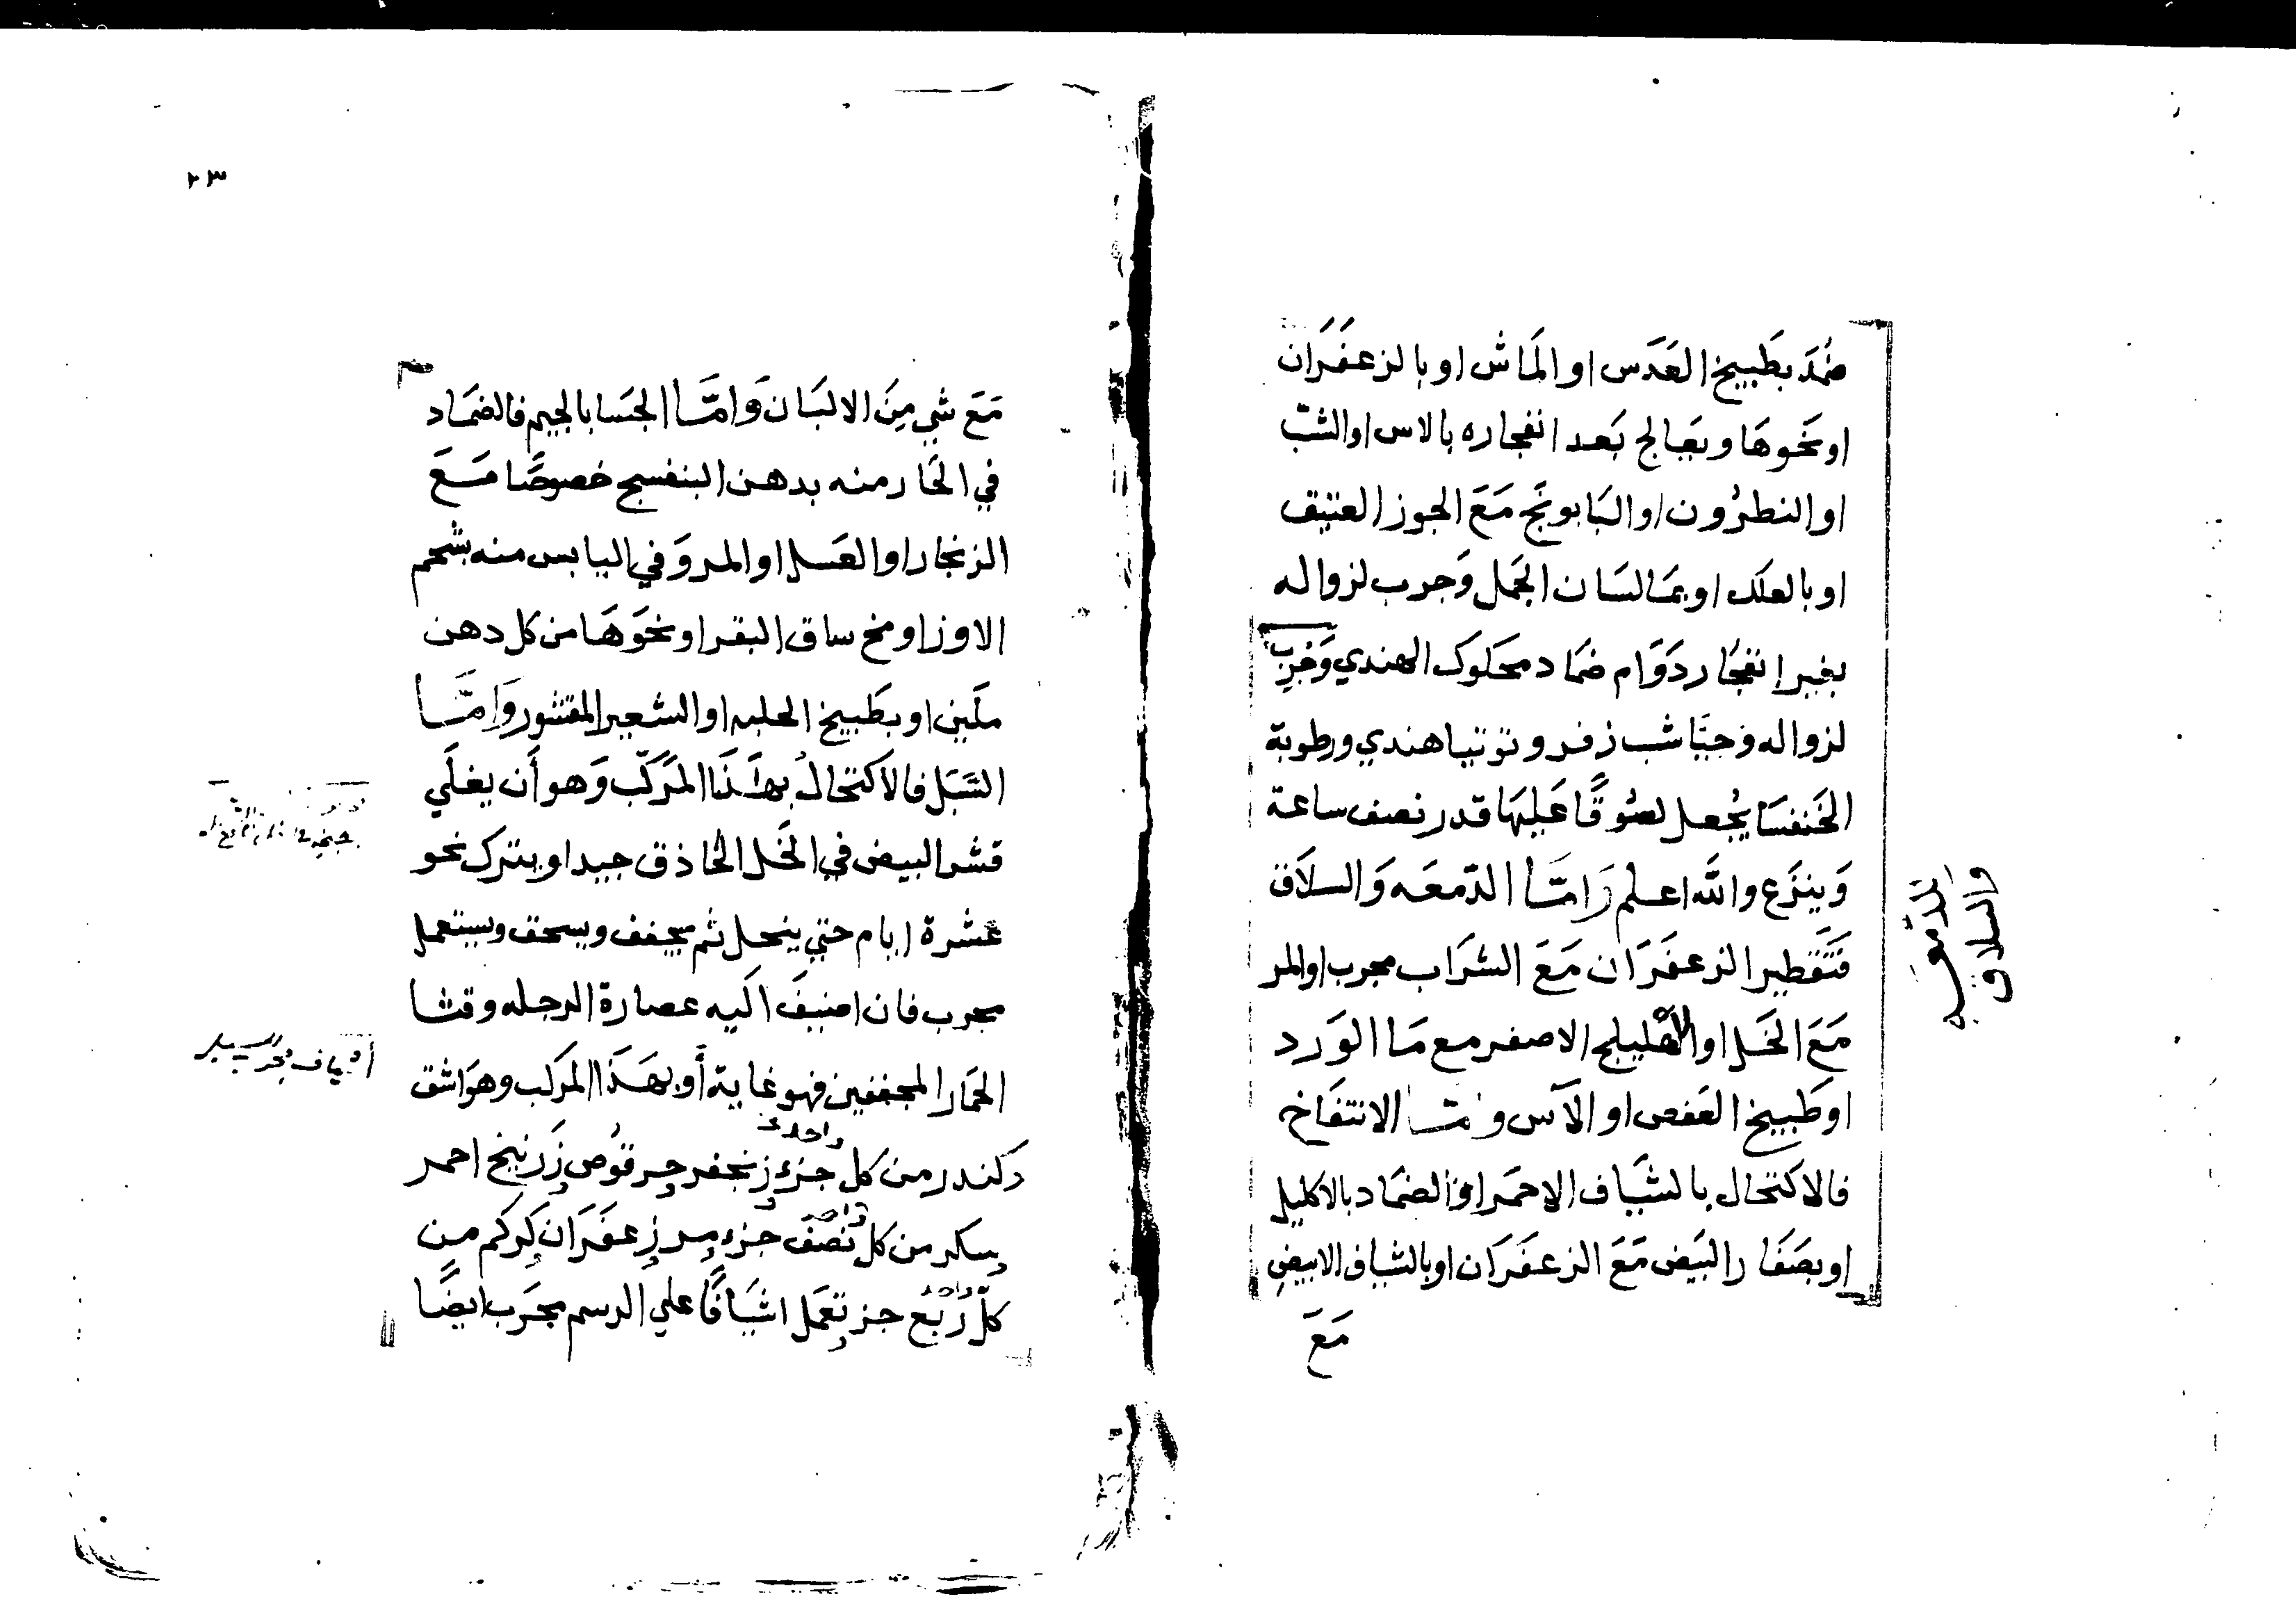 ضُمّدَ بطَبيخ العَدَس او المَاش او بالزعفَرَان
او نحوهَا ويعَالج بَعد انفجاره بالاس او الشبّ
او النطرُون او البَابونج مَعَ الجوز العتيق
او بالعلك او بمَا لسَان الجَمل وَجرب لزواله
بغير انفجَار دَوَام ضمَاد محكوك الهندي وَجرِب
لزواله وَحيًّا شب زفر وتوتيا هندي ورطوبة
الخَنفسَا يُجعل لصُوقًا عَليهَا قدر نصف ساعة
وَينزَع والله اعلم وَامّا الدّمعَه وَالسلاَق
فَتَقطير الزعفَرَان مَعَ الشرَاب مجرب او المر
مَعَ الخَل او الاهليلج الاصفر مع مَا الوَرد
او طَبيخ العَفص او الآس و الانتفَاخ
فالاكتحال بالشيَاف الاحمَر او الضمَاد بالاكليل
او بصَفَار البَيض مَعَ الزعفَرَان او بالشياف الابيض
مَعَ
الدّمعَه
والسلاق
٢٣
مَعَ شي مِنَ الالبَان وَامَّا الجسَا بالجيم فالضمَاد
في الحَار منه بدهن البنفسج خصوصًا مَعَ
الزنجار او العَسل او المر وَفي اليابس منه بشحم
الاوز او مخ ساق البقر او نحوَهَا من كل دهن
ملَين او بطَبيخ الحلبه او الشعير المقشور وَامَّا
السَّبَل فالاكتحالُ بهَذَا المرَكّب وَهو أَن يغلَي
قشر البيض في الخَل الحَاذق جيدا ويترك نحو
عشرة ايام حتي ينحل ثم يجفف ويسحق ويستعمل
مجرب فان اضيفَ اليه عصارة الرجله وقثا
الحمَار المجففين فهو غاية أو بهَذَا المركب وهوَ اشق
وكندر من كل جزء زنجفر قوُص زَرنيخ احمر
واحد
سكر من كل نصفَ جزء مر زعفَرَان كركم من
واحد
كلّ رُبع جز تعَمل اشيَافًا علي الرسم مجَرَب ايضًا
واحد
أشياف مجرب للسبل